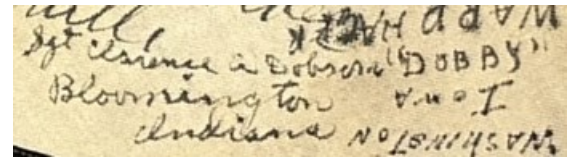 Sgt Clarence A Dobson "DOBBY"
Bloomington
Indiana
WAPP
Iowa
WASHINGTON